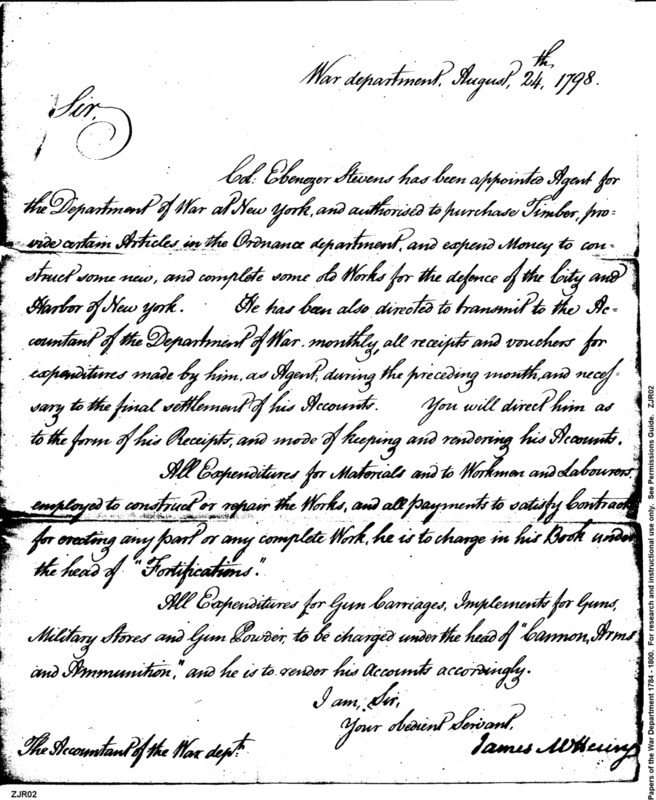 War department, August, 24th, 1798.
Sir,
Col: Ebenezer Stevens has been appointed Agent for
the Department of War at New York, and authorised to purchase Timber, pro-
vide certain Articles in the Ordnance department, and expend Money to con-
struct some new, and complete some old Works for the defence of the City and
Harbor of New York. He has been also directed to transmit to the Ac-
countant of the Department of War, monthly, all receipts and vouchers for
expenditures made by him, as Agent, during the preceding month, and neces-
sary to the final settlement of his Accounts. You will direct him as
to the form of his Receipts, and mode of keeping and rendering his Accounts.
All Expenditures for Materials and to Workmen and Labourers,
employed to construct or repair the Works, and all payments to satisfy Contracts
for erecting any part or any complete Work, he is to charge in his Book under
the head of "Fortifications."
All Expenditures for Gun Carriages, Implements for Guns,
Military Stores and Gun Powder, to be charged under the head of "Cannon, Arms
and Ammunition," and he is to render his Accounts accordingly.
I am, Sir,
Your obedient Servant,
James McHenry
The Accountant of the War dept:
ZJR02
Papers of the War Department 1784 - 1800. For research and instructional use only. See Permissions Guide. ZJR02